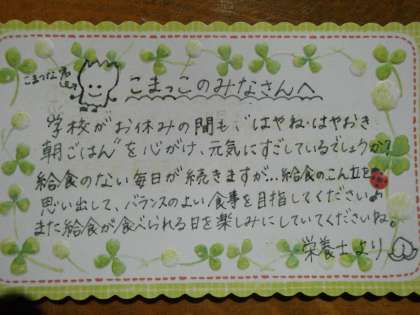 こまつな君
こまっこのみなさんへ
学校がお休みの間も"はやね・はやおき
朝ごはん"を心がけ、元気にすごしているでしょうか?
給食のない毎日が続きますが…給食のこんだてを
思い出して、バランスのよい食事を目指してください♪
また給食が食べられる日を楽しみにしていてくださいね。
栄養士より